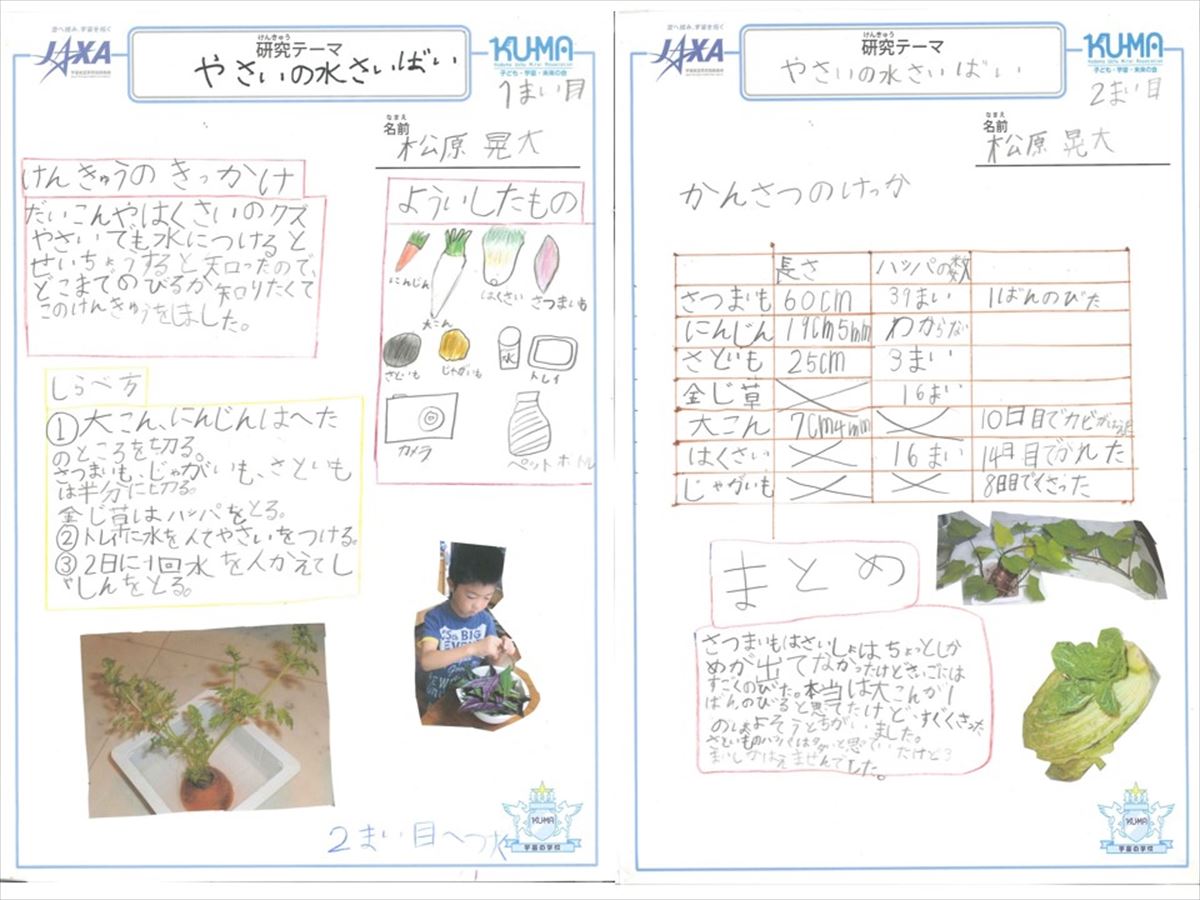 空へ挑み、宇宙を拓く
JAXA
けんきゅう
研究テーマ
やさいの水さいばい
KUMA
子ども・宇宙・未来の会
1まい目
なまえ
名前
松原 晃大
けんきゅうの きっかけ
だいこんやはくさいのクズ
やさいでも水につけると
せいちょうすると知ったので、
どこまでのびるか知りたくて
このけんきゅうをしました。
よういしたもの
にんじん
大こん
はくさい
さつまいも
さといも
じゃがいも
水
トレイ
カメラ
ペットボトル
しらべ方
①大こん、にんじんはへた
のところを切る。
さつまいも、じゃがいも、さといも
は半分に切る。
金じ草はハッパをとる。
②トレイに水を入てやさいをつける。
③2日に1回水を入かえてし
ゃしんをとる。
2まい目へつ
KUMA
宇宙の学校
空へ挑み、宇宙を拓く
JAXA
けんきゅう
研究テーマ
やさいの水さいばい
KUMA
子ども・宇宙・未来の会
2まい目
なまえ
名前
松原 晃大
かんさつのけっか
長さ ハッパの数
さつまいも 60cm 39まい 1ばんのびた
にんじん 19cm5mm わからない
さといも 25cm 3まい
金じ草 16まい
大こん 7cm4mm 10日目でカビがはえた
はくさい 16まい 14日目でかれた
じゃがいも 8日目でくさった
まとめ
さつまいもはさいしょはちょっとしか
めが出てなかったけどさいごには
すごくのびた。本当は大こんが1
ばんのびると思てたけどすぐくさった
のでよそうとちがいました。
さといものハッパは多いと思っていたけど3
まいしかはえませんでした。
KUMA
宇宙の学校